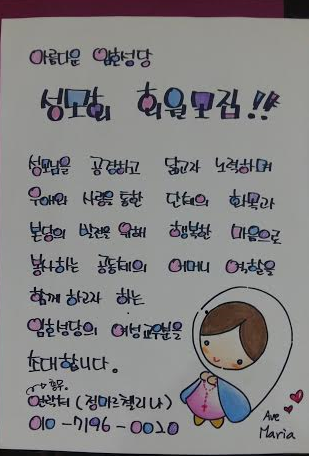 아름다운 임한성당
성모회 회원모집!!
성모님을 공경하고 닮고자 노력하며
우애와 사랑을 통한 단체의 화목과
본당의 발전을 위해 행복한 마음으로
봉사하는 공동체의 어머니 역할을
함께 하고자 하는
임한성당의 여성교우분을
초대합니다.
총무.
연락처 (정마르첼리나)
010-7196-0020
Ave
Maria